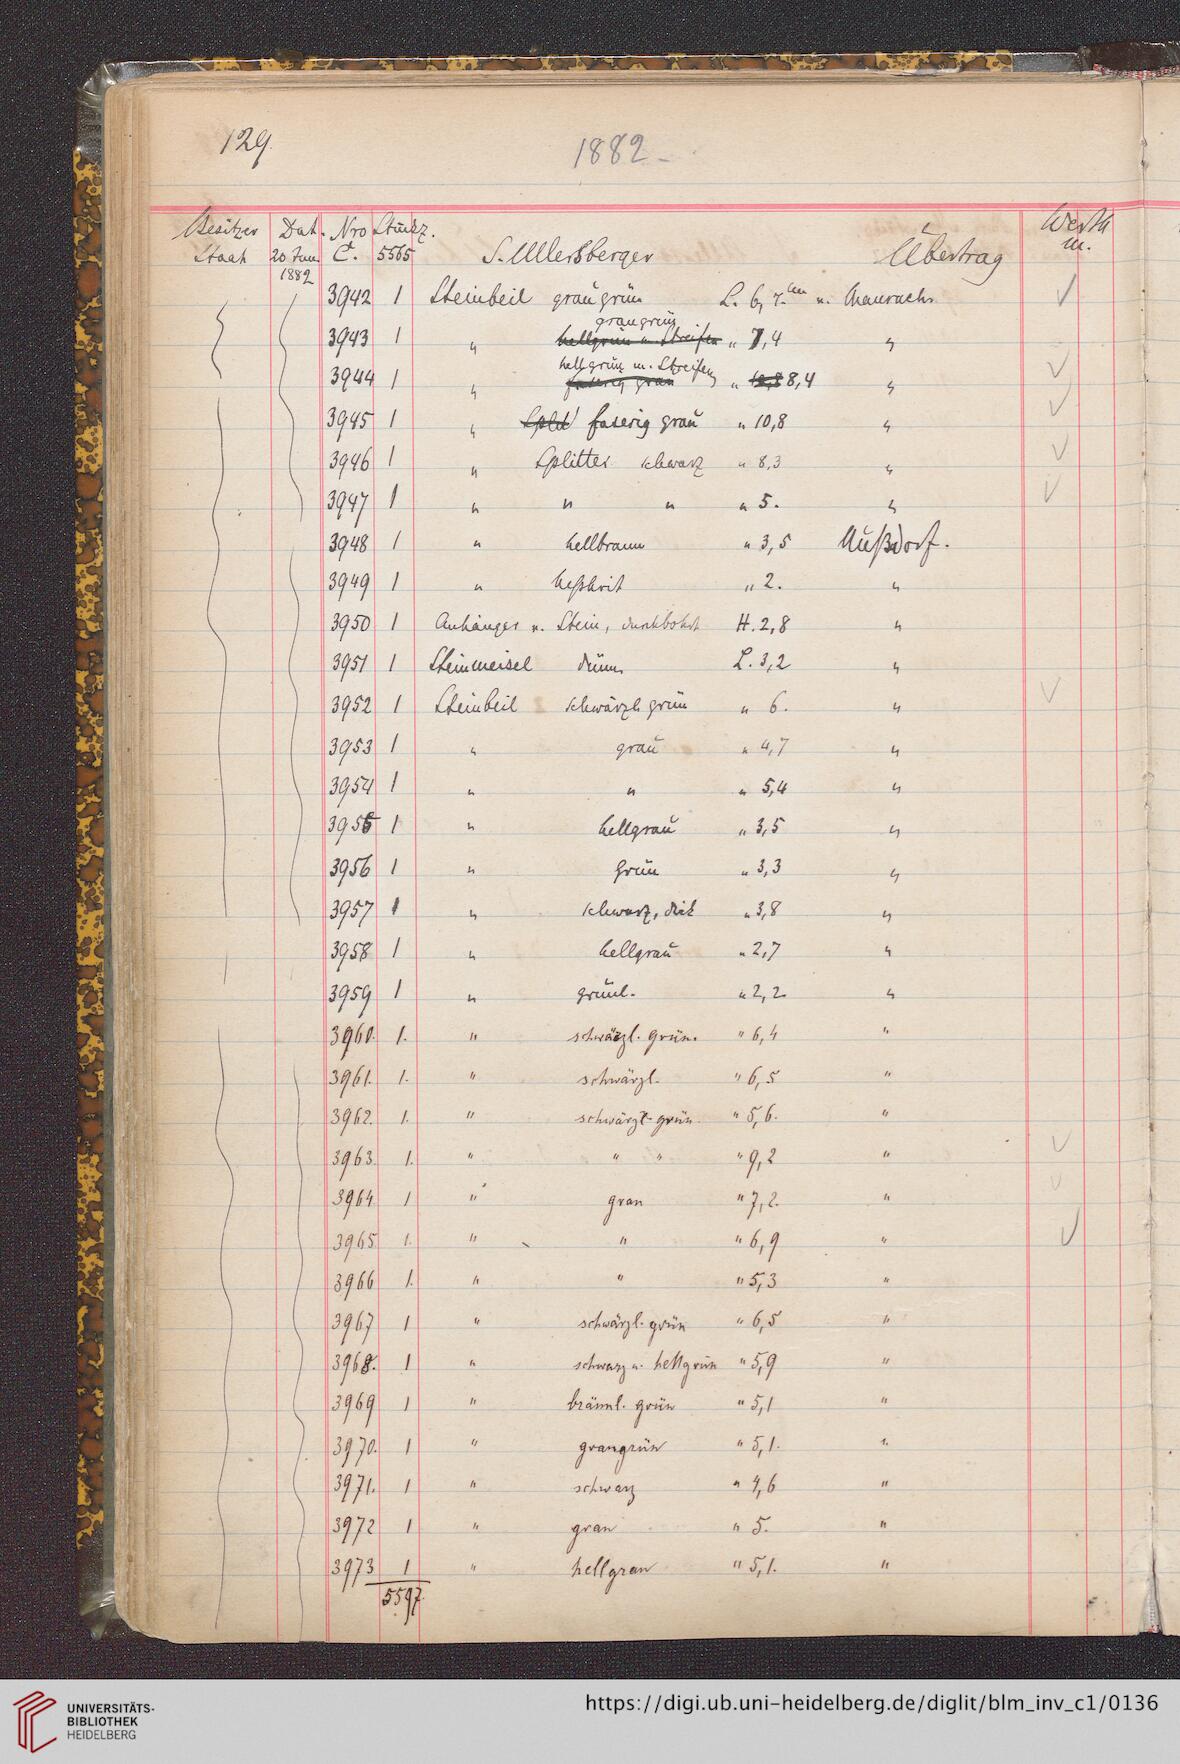 129.
1882
Besitzer Dat. Nro Stückz. Werth
Staat 20 Jun. C. 5565 S. Ullersberger Übertrag M.
1882
3942 1 Steinbeil graugrün L. 6,7 cm u. Maurach
graugrün
3943 1 " hellgrün m. Streifen " 7,4 "
hellgrün m. Streifen
3944 1 " faserig grau " 10,8 8,4 "
3945 1 " Split faserig grau " 10,8 "
3946 1 " Splitter schwarz " 8,3 "
3947 1 " " " " 5. "
3948 1 " hellbraun " 3,5 Nußdorf.
3949 1 " " 2. "
3950 1 Anhänger v. Stein, durchbohrt H. 2,8 "
3951 1 Steinmeisel dünn L. 3,2 "
3952 1 Steinbeil schwärzl. grün " 6. "
3953 1 " grau " 4,7 "
3954 1 " " " 5,4 "
3955 1 " hellgrau " 3,5 "
3956 1 " grün " 3,3 "
3957 1 " schwarz, dick " 3,8 "
3958 1 " hellgrau " 2,7 "
3959 1 " grünl. " 2,2 "
3960. 1. " schwärzl. grün. " 6,4 "
3961. 1. " schwärzl. " 6,5 "
3962. 1. " schwärzl. grün " 5,6. "
3963. 1. " " " " 9,2 "
3964. 1 " grau " 7,2. "
3965 1. " " " 6,9 "
3966 1. " " " 5,3 "
3967 1 " schwärzl. grün " 6,5 "
3968. 1 " schwarz u. hellgrün " 5,9 "
3969 1 " bräunl. grün " 5,1 "
3970. 1 " graugrün " 5,1. "
3971. 1 " schwarz " 4,6 "
3972 1 " grau " 5. "
3973 1 " hellgrau " 5,1. "
5597.
UNIVERSITÄTS-
BIBLIOTHEK
HEIDELBERG
https://digi.ub.uni-heidelberg.de/diglit/blm_inv_c1/0136